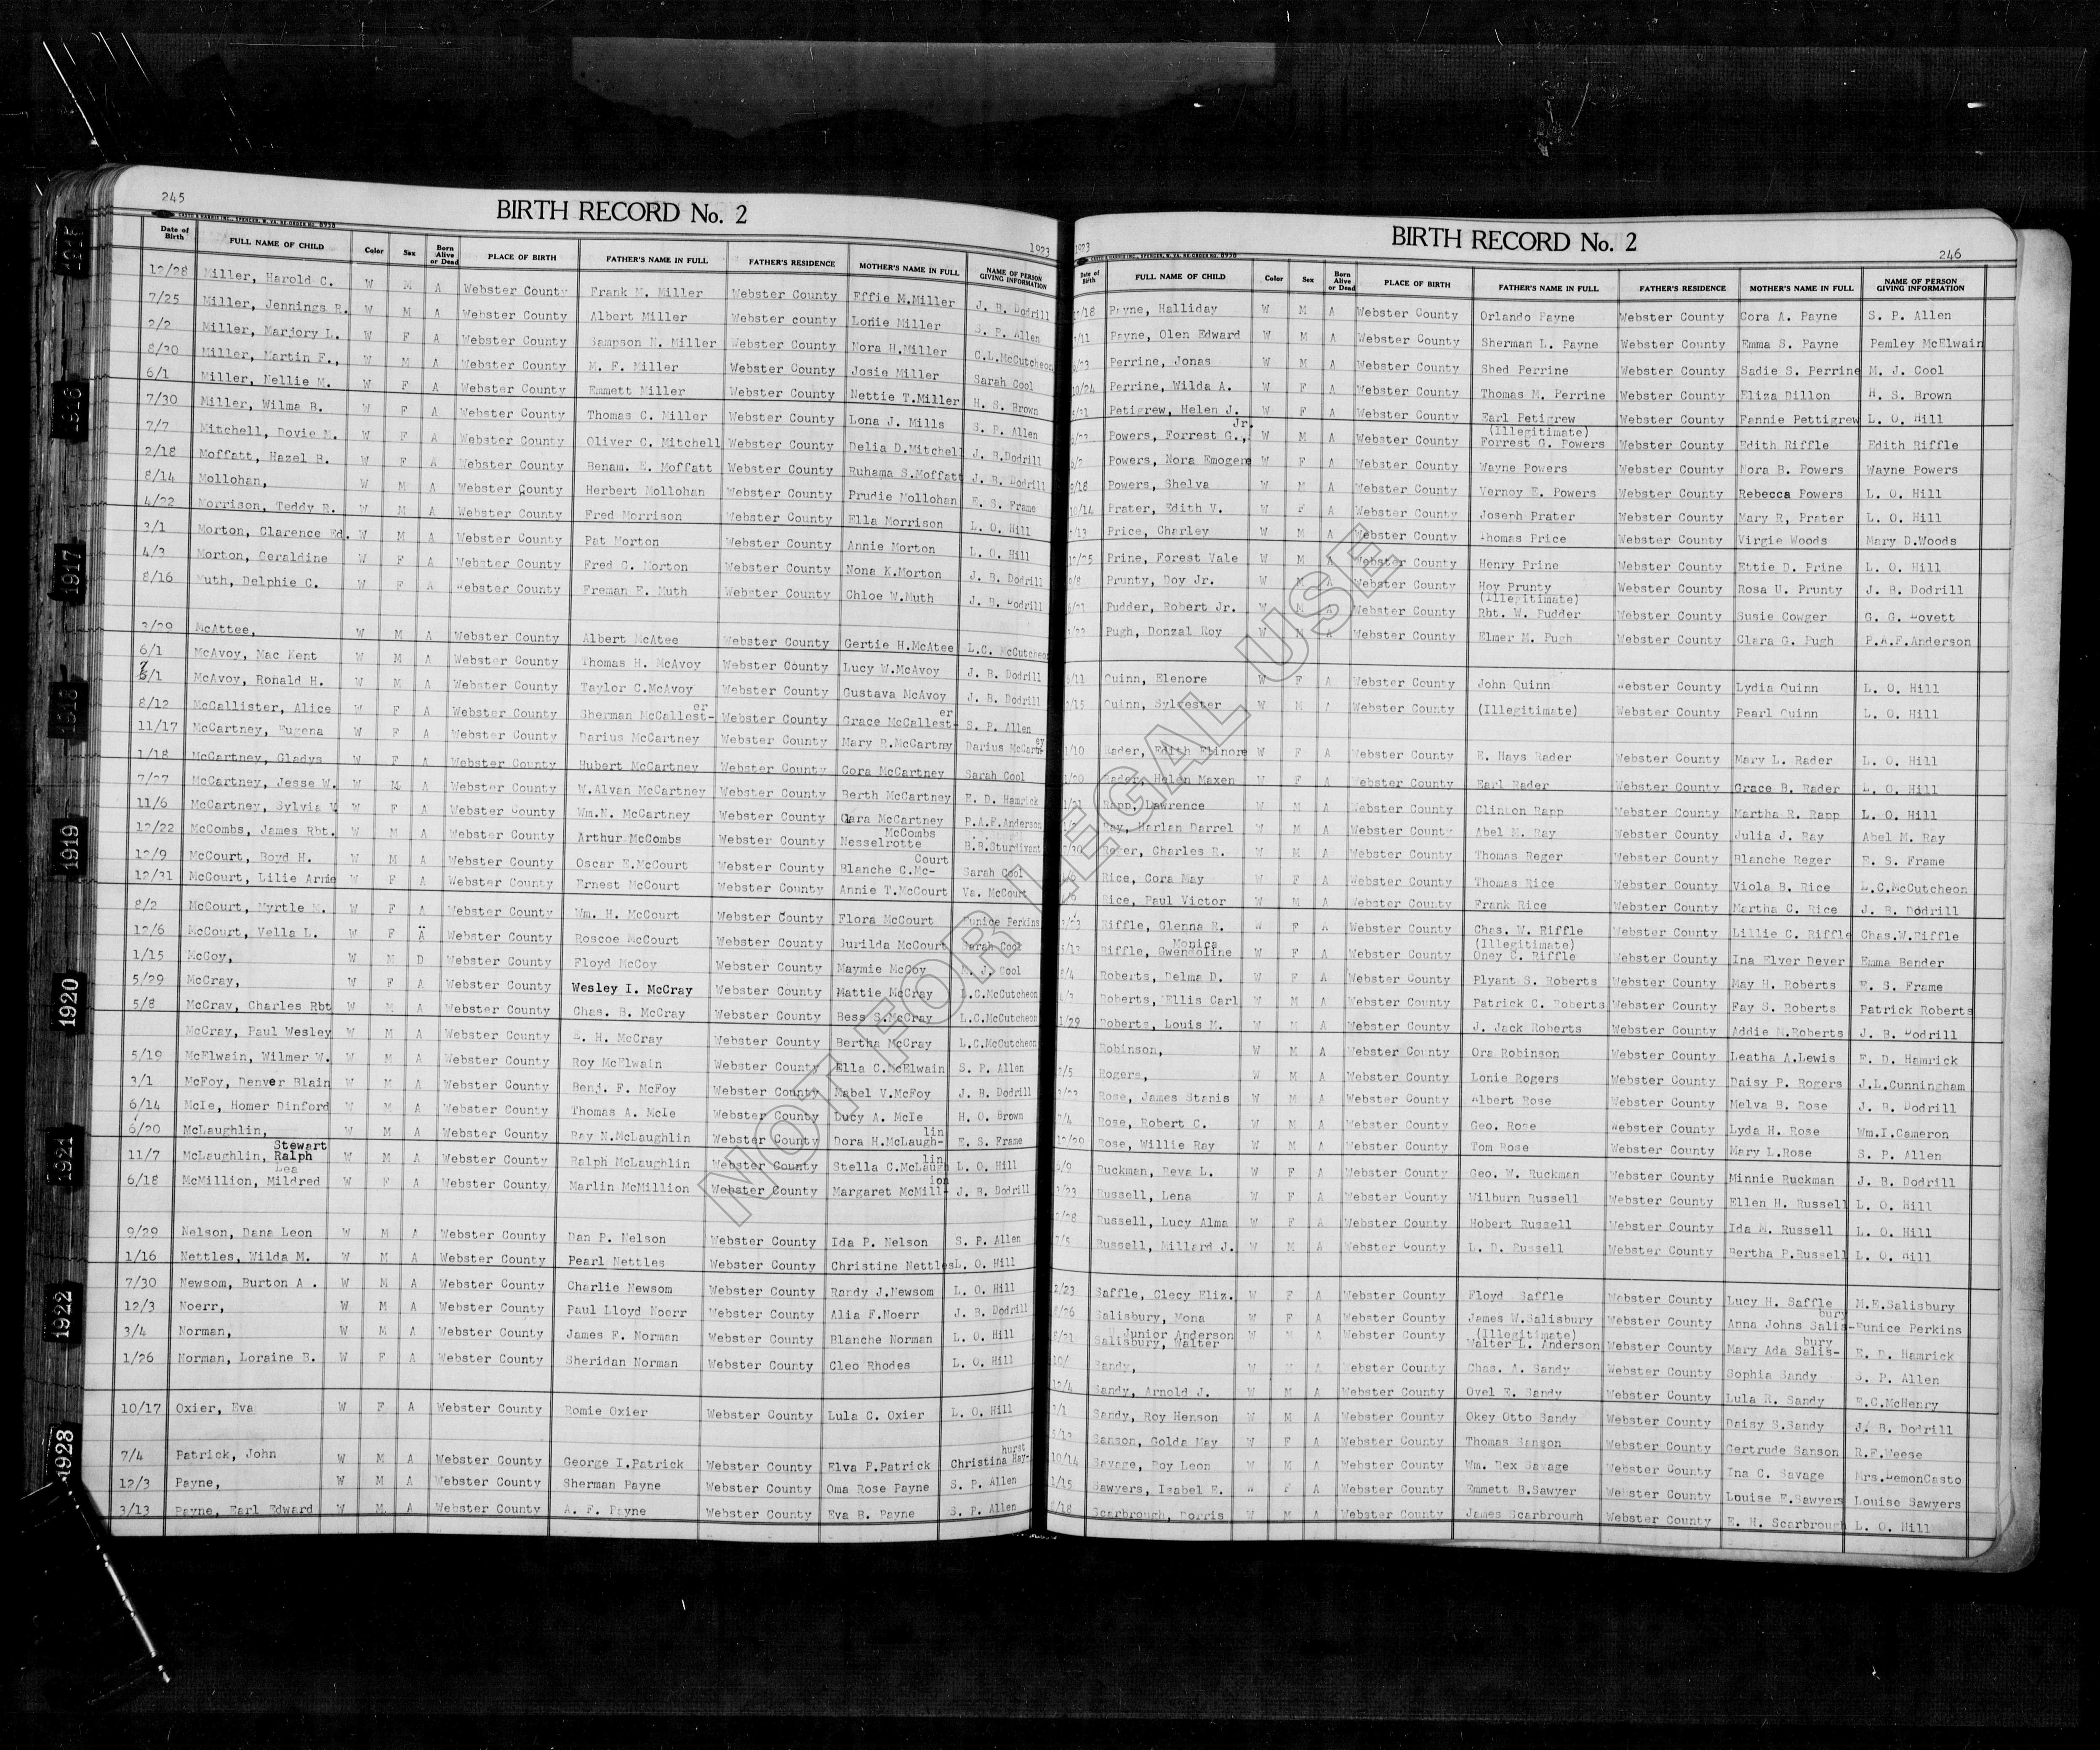 245
BIRTH RECORD No. 2
1923
Date of Birth FULL NAME OF CHILD Color Sex Born Alive or Dead PLACE OF BIRTH FATHER'S NAME IN FULL FATHER'S RESIDENCE MOTHER'S NAME IN FULL NAME OF PERSON GIVING INFORMATION
12/28 Miller, Harold C. W M A Webster County Frank M. Miller Webster County Effie M.Miller J. B. Dodrill
7/25 Miller, Jennings R. W M A Webster County Albert Miller Webster county Lonie Miller S. P. Allen
2/2 Miller, Marjory L. W F A Webster County Sampson N. Miller Webster County Nora H.Miller C.L.McCutcheon
8/30 Miller, Martin F., W M A Webster County M. F. Miller Webster County Josie Miller Sarah Cool
6/1 Miller, Nellie M. W F A Webster County Emmett Miller Webster County Nettie T.Miller H. S. Brown
7/30 Miller, Wilma B. W F A Webster County Thomas C. Miller Webster County Lona J. Mills S. P. Allen
7/7 Mitchell, Dovie M. W F A Webster County Oliver C. Mitchell Webster County Delia D.Mitchell J. B.Dodrill
2/18 Moffatt, Hazel B. W F A Webster County Benam. E. Moffatt Webster County Ruhama S.Moffatt J. B. Dodrill
8/14 Mollohan, W M A Webster County Herbert Mollohan Webster County Prudie Mollohan E. S. Frame
4/22 Morrison, Teddy R. W M A Webster County Fred Morrison Webster County Ella Morrison L. O. Hill
3/1 Morton, Clarence Ed. W M A Webster County Pat Morton Webster County Annie Morton L. O. Hill
4/3 Morton, Geraldine W F A Webster County Fred C. Morton Webster County Nona K.Morton J. B. Dodrill
8/16 Muth, Delphie C. W F A Webster County Freman E. Muth Webster County Chloe W.Muth J. B. Dodrill
3/29 McAttee, W M A Webster County Albert McAtee Webster County Gertie H.McAtee L.C. McCutcheon
6/1 McAvoy, Mac Kent W M A Webster County Thomas H. McAvoy Webster County Lucy W.McAvoy J. B. Dodrill
/1 McAvoy, Ronald H. W M A Webster County Taylor C.McAvoy Webster County Gustava McAvoy J. B. Dodrill
8/12 McCallister, Alice W F A Webster County Sherman McCallest-er Webster County Grace McCallest-er S. P. Allen
11/17 McCartney, Eugena W F A Webster County Darius McCartney Webster County Mary B.McCartny Darius McCartn-ey
1/18 McCartney, Gladys W F A Webster County Hubert McCartney Webster County Cora McCartney Sarah Cool
7/27 McCartney, Jesse W. W M A Webster County W.Alvan McCartney Webster County Berth McCartney E. D. Hamrick
11/6 McCartney, Sylvia V. W F A Webster County Wm.N. McCartney Webster County Clara McCartney P.A.F.Anderson
12/22 McCombs, James Rbt. W M A Webster County Arthur McCombs Webster County McCombs Nesselrotte B.B.Sturdivant
12/9 McCourt, Boyd H. W M A Webster County Oscar E.McCourt Webster County Blanche C.Mc-Court Sarah Cool
12/31 McCourt, Lilie Arnie W F A Webster County Ernest McCourt Webster County Annie T.McCourt Va. McCourt
8/2 McCourt, Myrtle M. W F A Webster County Wm. H. McCourt Webster County Flora McCourt Eunice Perkins
12/6 McCourt, Vella L. W F A Webster County Roscoe McCourt Webster County Surilda McCourt Sarah Cool
1/15 McCoy, W M D Webster County Floyd McCoy Webster County Maymie McCoy M. J. Cool
5/29 McCray, W F A Webster County Wesley I. McCray Webster County Mattie McCray L.C.McCutcheon
5/8 McCray, Charles Rbt W M A Webster County Chas. B. McCray Webster County Bess S.McCray L.C.McCutcheon
McCray, Paul Wesley W M A Webster County E. H. McCray Webster County Bertha McCray L.C.McCutcheon
5/19 McElwain, Wilmer W. W M A Webster County Roy McElwain Webster County Ella C.McElwain S. P. Allen
3/1 McFoy, Denver Blain W M A Webster County Benj. F. McFoy Webster County Mabel V.McFoy J. B. Dodrill
6/14 McIe, Homer Dinford W M A Webster County Thomas A. McIe Webster County Lucy A. McIe H. O. Brown
6/20 McLaughlin, W M A Webster County Ray N.McLaughlin Webster County Dora H.McLaugh-lin E. S. Frame
11/7 McLaughlin, Stewart Ralph W M A Webster County Ralph McLaughlin Webster County Stella C.McLaughlin L. O. Hill
6/18 McMillion, Mildred Lea W F A Webster County Marlin McMillion Webster County Margaret McMill-ion J. B. Dodrill
9/29 Nelson, Dana Leon W M A Webster County Dan P. Nelson Webster County Ida P. Nelson S. P. Allen
1/16 Nettles, Wilda M. W M A Webster County Pearl Nettles Webster County Christine Nettles L. O. Hill
7/30 Newsom, Burton A . W M A Webster County Charlie Newsom Webster County Randy J.Newsom L. O. Hill
12/3 Noerr, W M A Webster County Paul Lloyd Noerr Webster County Alia F.Noerr J. B. Dodrill
3/4 Norman, W M A Webster County James F. Norman Webster County Blanche Norman L. O. Hill
1/26 Norman, Loraine B. W F A Webster County Sheridan Norman Webster County Cleo Rhodes L. O. Hill
10/17 Oxier, Eva W F A Webster County Romie Oxier Webster County Lula C. Oxier L. O. Hill
7/4 Patrick, John W M A Webster County George I.Patrick Webster County Elva P.Patrick Christina Hay-hurst
12/3 Payne, W M A Webster County Sherman Payne Webster County Oma Rose Payne S. P. Allen
3/13 Payne, Earl Edward W M A Webster County A. F. Payne Webster County Eva B. Payne S. P. Allen
1923
BIRTH RECORD No. 2
246
Date of Birth FULL NAME OF CHILD Color Sex Born Alive or Dead PLACE OF BIRTH FATHER'S NAME IN FULL FATHER'S RESIDENCE MOTHER'S NAME IN FULL NAME OF PERSON GIVING INFORMATION
Payne, Halliday W M A Webster County Orlando Payne Webster County Cora A. Payne S. P. Allen
Payne, Olen Edward W M A Webster County Sherman L. Payne Webster County Emma S. Payne Pemley McElwain
Perrine, Jonas W M A Webster County Shed Perrine Webster County Sadie S. Perrine M. J. Cool
10/24 Perrine, Wilda A. W F A Webster County Thomas M. Perrine Webster County Eliza Dillon H. S. Brown
Petigrew, Helen J. W F A Webster County Earl Petigrew Webster County Fannie Pettigrew L. O. Hill
Powers, Forrest G., Jr. W M A Webster County (Illegitimate) Forrest G. Powers Webster County Edith Riffle Edith Riffle
Powers, Nora Emogene W F A Webster County Wayne Powers Webster County Nora B. Powers Wayne Powers
Powers, Shelva W M A Webster County Vernoy E. Powers Webster County Rebecca Powers L. O. Hill
10/14 Prater, Edith V. W F A Webster County Joseph Prater Webster County Mary R, Prater L. O. Hill
Price, Charley W M A Webster County Thomas Price Webster County Virgie Woods Mary D.Woods
12/25 Prine, Forest Vale W M A Webster County Henry Prine Webster County Ettie D. Prine L. O. Hill
Prunty, Doy Jr. W M A Webster County Hoy Prunty Webster County Rosa U. Prunty J. B. Dodrill
Pudder, Robert Jr. W M A Webster County (Illegitimate) Rbt. W. Pudder Webster County Susie Cowger G. G. Dovett
Pugh, Donzal Roy W M A Webster County Elmer M. Pugh Webster County Clara G. Pugh P.A.F.Anderson
6/11 Quinn, Elenore W F A Webster County John Quinn Webster County Lydia Quinn L. O. Hill
Quinn, Sylvester W M A Webster County (Illegitimate) Webster County Pearl Quinn L. O. Hill
1/10 Rader, Edith Elinore W F A Webster County E. Hays Rader Webster County Mary L. Rader L. O. Hill
1/20 Rader, Helen Maxen W F A Webster County Earl Rader Webster County Grace B. Rader L. O. Hill
Rapp, Lawrence W M A Webster County Clinton Rapp Webster County Martha R. Rapp L. O. Hill
Ray, Harlan Darrel W M A Webster County Abel M. Ray Webster County Julia J. Ray Abel M. Ray
Reger, Charles R. W M A Webster County Thomas Reger Webster County Blanche Reger E. S. Frame
Rice, Cora May W F A Webster County Thomas Rice Webster County Viola B. Rice L.C.McCutcheon
Rice, Paul Victor W M A Webster County Frank Rice Webster County Martha C. Rice J. B. Dodrill
Riffle, Glenna R. W F A Webster County Chas. W. Riffle Webster County Lillie C. Riffle Chas.W.Riffle
5/13 Riffle, Gwendoline Monica W F A Webster County (Illegitimate) Oney C. Riffle Webster County Ina Elver Dever Emma Bender
Roberts, Delma D. W F A Webster County Plyant S. Roberts Webster County May H. Roberts E. S. Frame
Roberts, Ellis Carl W M A Webster County Patrick C. Roberts Webster County Fay S. Roberts Patrick Roberts
1/29 Roberts, Louis M. W M A Webster County J. Jack Roberts Webster County Addie M.Roberts J. B. Dodrill
Robinson, W M A Webster County Ora Robinson Webster County Leatha A.Lewis E. D. Hamrick
Rogers, W M A Webster County Lonie Rogers Webster County Daisy P. Rogers J.L.Cunningham
Rose, James Stanis W M A Webster County Albert Rose Webster County Melva B. Rose J. B. Dodrill
Rose, Robert C. W M A Webster County Geo. Rose Webster County Lyda H. Rose Wm.I.Cameron
12/29 Rose, Willie Ray W M A Webster County Tom Rose Webster County Mary L.Rose S. P. Allen
6/9 Ruckman, Reva L. W F A Webster County Geo. W. Ruckman Webster County Minnie Ruckman J. B. Dodrill
Russell, Lena W F A Webster County Wilburn Russell Webster County Ellen H. Russell L. O. Hill
Russell, Lucy Alma W F A Webster County Hobert Russell Webster County Ida M. Russell L. O. Hill
Russell, Millard J. W M A Webster County L. D. Russell Webster County Bertha P.Russell L. O. Hill
2/23 Saffle, Clecy Eliz. W F A Webster County Floyd Saffle Webster County Lucy H. Saffle M.E.Salisbury
8/26 Salisbury, Mona W F A Webster County James W.Salisbury Webster County Anna Johns Salis-bury Eunice Perkins
8/21 Salisbury, Junior Anderson Walter W M A Webster County (Illegitimate) Walter L. Anderson Webster County Mary Ada Salis-bury E. D. Hamrick
10/ Sandy, W M A Webster County Chas. A. Sandy Webster County Sophia Sandy S. P. Allen
12/4 Sandy, Arnold J. W M A Webster County Ovel E. Sandy Webster County Lula R. Sandy E.C.McHenry
3/1 Sandy, Roy Henson W M A Webster County Okey Otto Sandy Webster County Daisy S.Sandy J. B. Dodrill
5/12 Sanson, Golda May W F A Webster County Thomas Sanson Webster County Gertrude Sanson R.F.Weese
10/14 Savage, Roy Leon W M A Webster County Wm. Rex Savage Webster County Ina C. Savage Mrs.DemonCasto
1/15 Sawyers, Isabel E. W F A Webster County Emmett B.Sawyer Webster County Louise E.Sawyers Louise Sawyers
8/18 Scarbrough, Dorris W M A Webster County James Scarbrough Webster County E. H. Scarbrough L. O. Hill
NOT FOR LEGAL USE
1916
1917
1918
1919
1920
1921
1922
1923